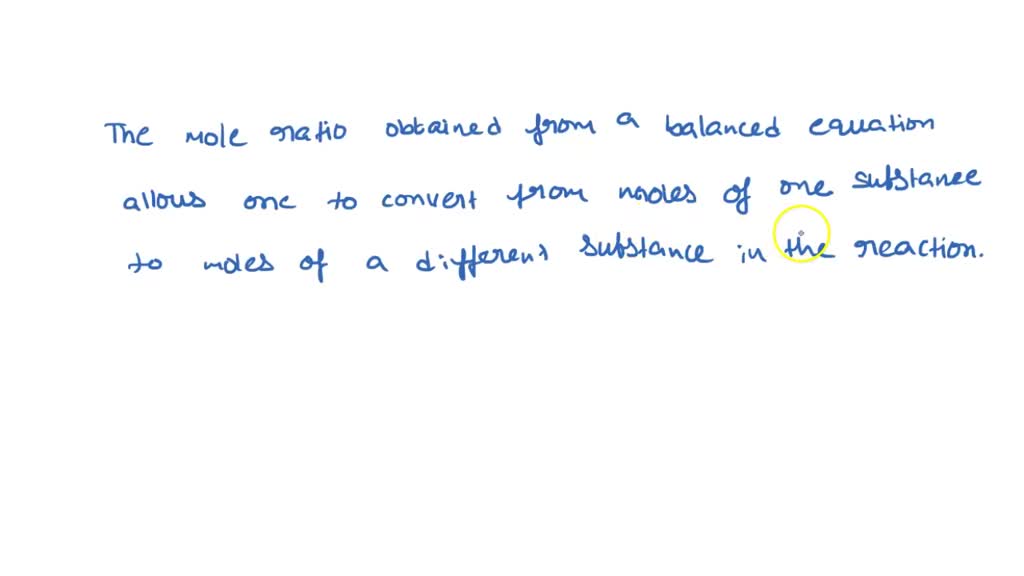 The mole ratio obtained from a balanced equation
allows one to convert from moles of one substance
to moles of a different substance in the reaction.